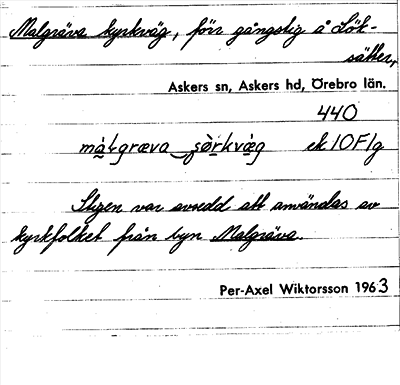 Malgräva kyrkväg, förr gångstig å Lök-
sätter,
Askers sn, Askers hd, Örebro län.
440
målgræva ek 10F1g
Stigen var avsedd att användas av
kyrkfolket från byn Malgräva.
Per-Axel Wiktorsson 1963